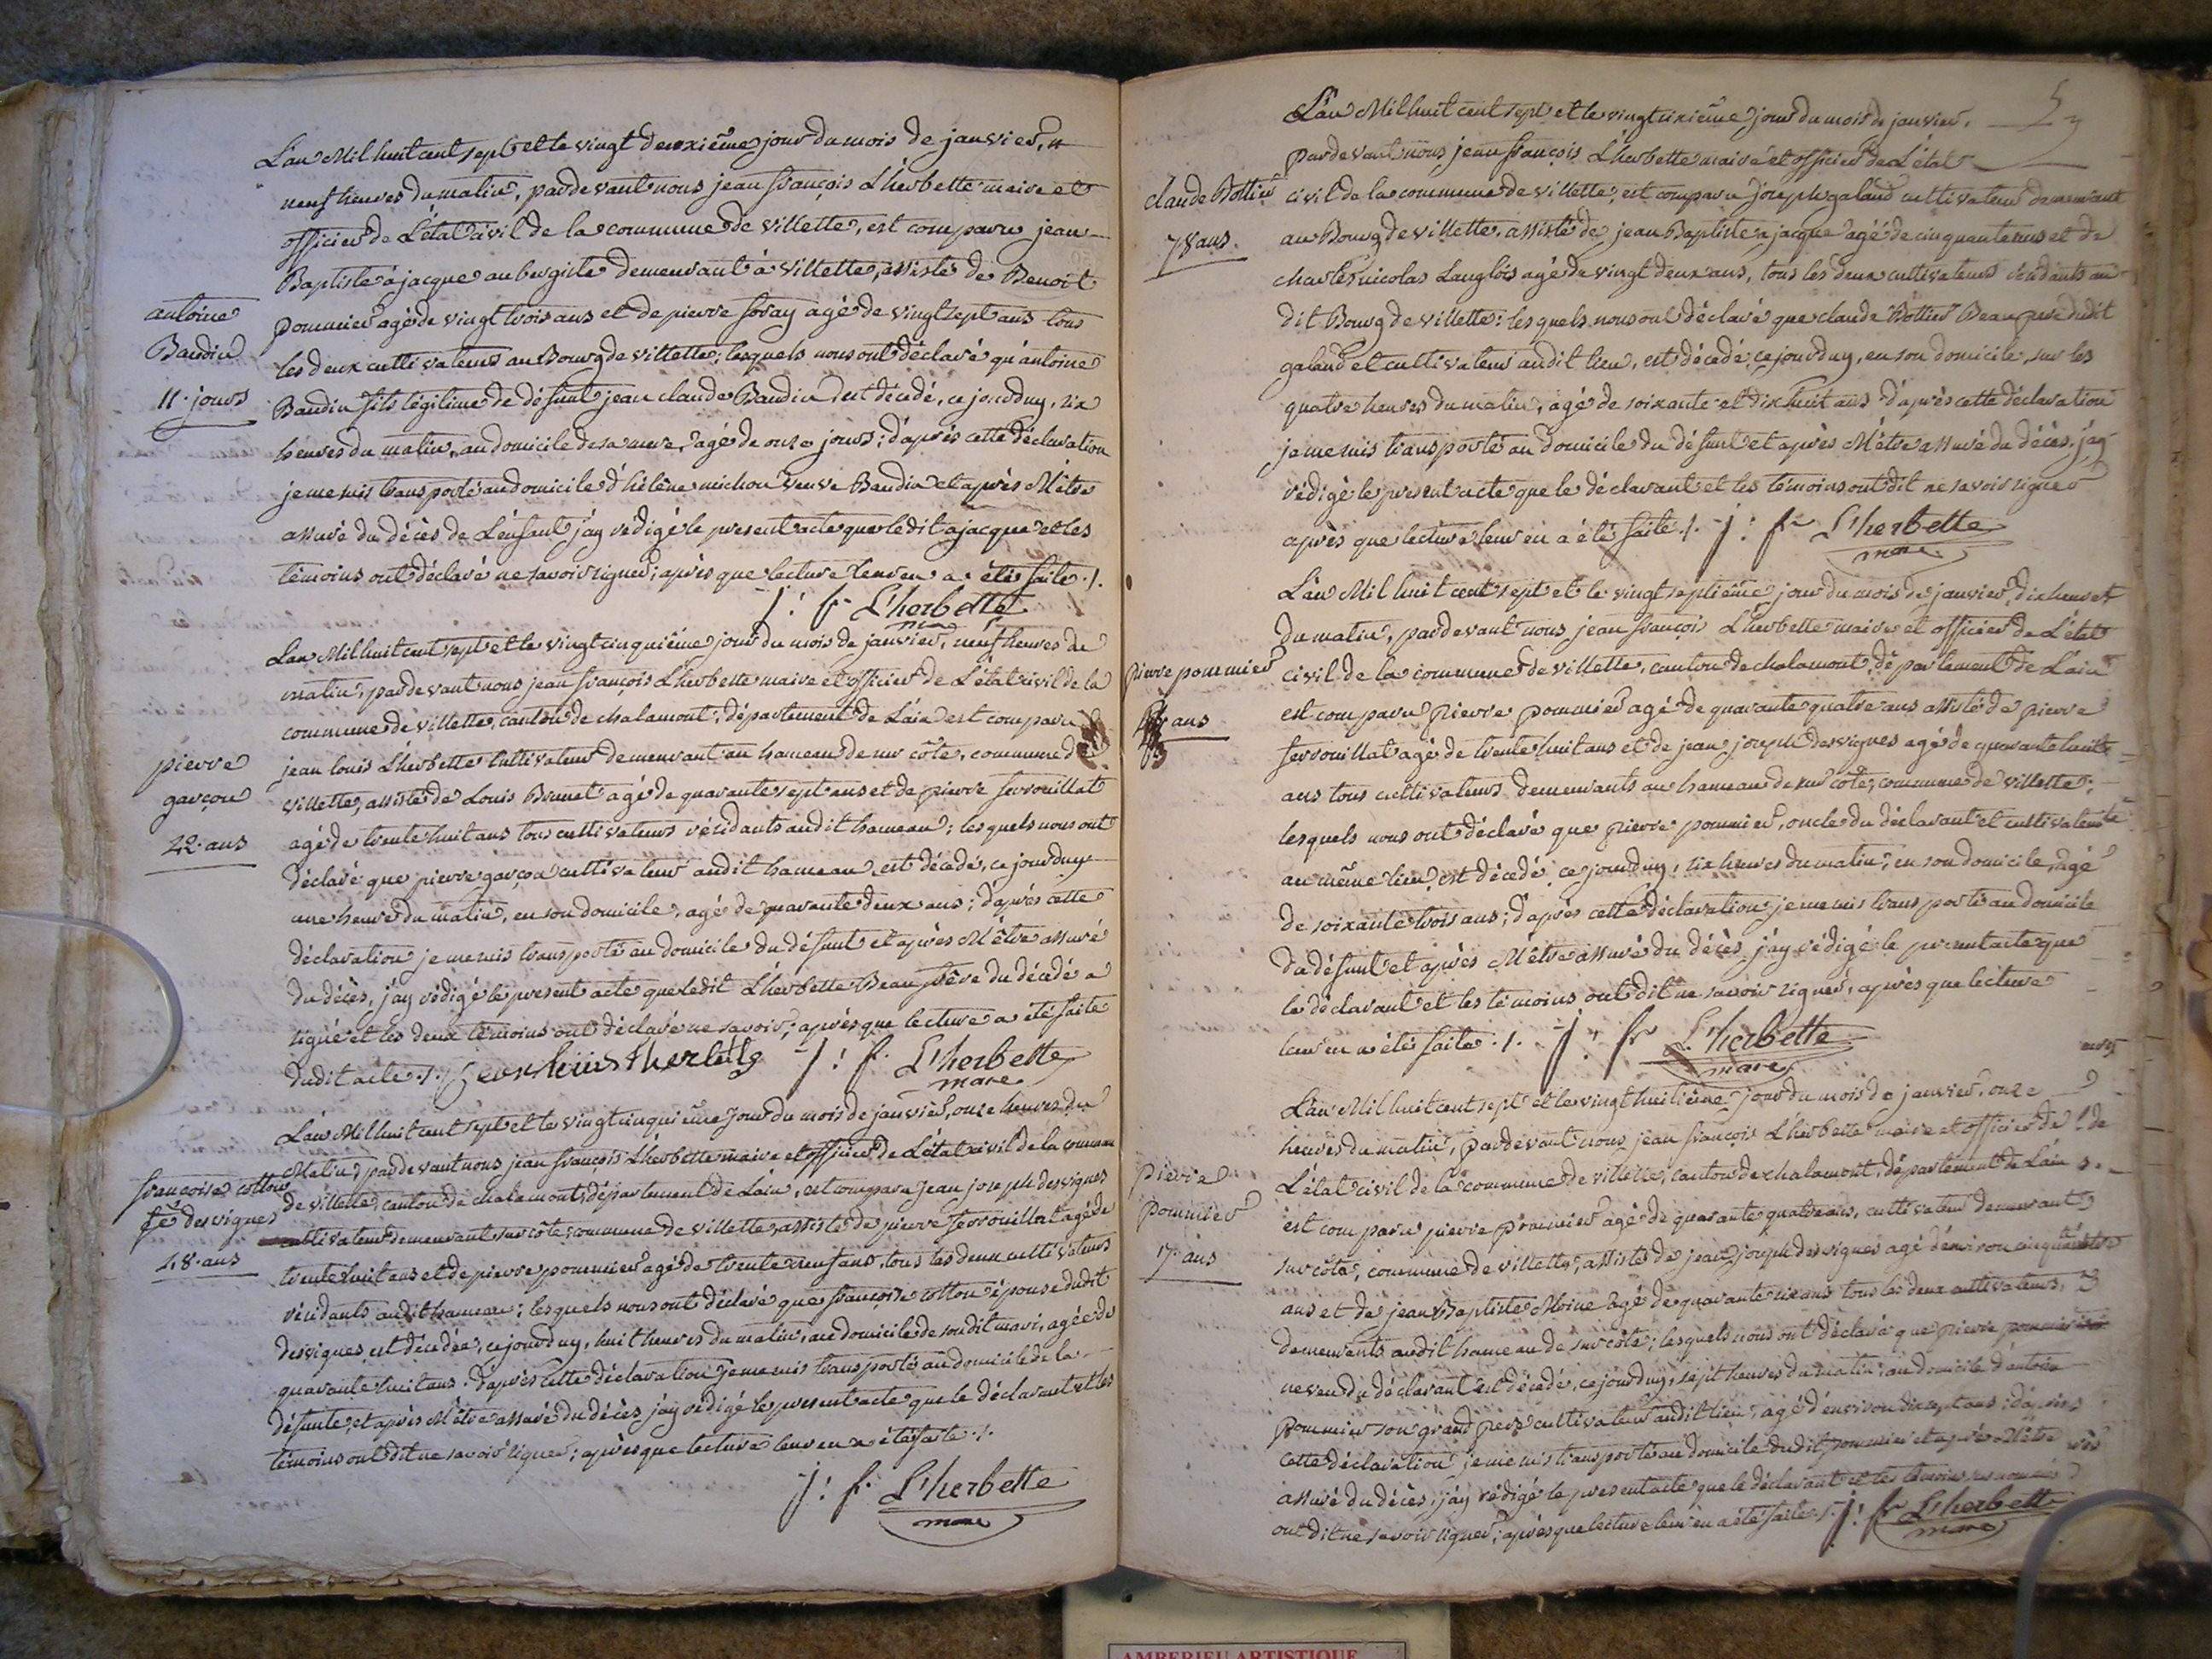 L'an Mil huit cent sept et le vingt deuxième jour du mois de janvier, a
neuf heures du matin, pardevant nous jean françois L'herbette maire et
officier de L'état civil de la commune de villette, est comparu jean
Baptiste ajacque aubergiste demeurant à villette, assisté de Benoit
pommier agé de vingt trois ans et de pierre foray agé de vingt sept ans tous
les deux cultivateurs au Bourg de villette; lesquels nous ont déclaré qu'antoine
Baudin fils légitime de défunt jean claude Baudin est décédé, ce jourduy, six
heures du matin, au domicile de sa mere, agé de onze jours; d'après cette déclaration
je me suis transporté au domicile d'hélène michon veuve Baudin et après M'être
assuré du décès de L'enfant j'ay rédigé le present acte que ledit ajacque et les
témoins ont déclaré ne savoir signer; après que lecture leur en a été faite ./.
j: f. L'herbette
maire
antoine
Baudin
11. jours
L'an Mil huit cent sept et le vingt cinquième jour du mois de janvier, neuf heures du
matin, pardevant nous jean françois L'herbette maire et officier de L'état civil de la
commune de villette, canton de chalamont, département de L'ain est comparu
jean louis L'herbette cultivateur demeurant au hameau de sur côte, commune de
villette, assisté de Louis Brunet agé de quarante sept ans et de pierre ferrouillat
agé de trente huit ans tous cultivateurs résidants audit hameau; lesquels nous ont
déclaré que pierre garçon cultivateur audit hameau est décédé, ce jourduy
une heure du matin, en son domicile, agé de quarante deux ans; d'après cette
déclaration je me suis transporté au domicile du défunt et après M'être assuré
du décès, j'ay rédigé le present acte que ledit L'herbette Beau frère du décédé a
signé et les deux témoins ont déclaré ne savoir; après que lecture a été faite
dudit acte ./. jean louis lherbette j: f. L'herbette
maire
pierre
garçon
42. ans
L'an Mil huit cent sept et le vingt cinquième jour du mois de janvier, onze heures du
Matin, pardevant nous jean françois L'herbette maire et officier de L'état civil de la commune
de villette, canton de chalamont, département de L'ain, est comparu jean joseph desvignes
cultivateur demeurant sur côte, commune de villette, assisté de pierre ferrouillat agé de
trente huit ans et de pierre pommier agé de trente neuf ans, tous les deux cultivateurs
résidants audit hameau; lesquels nous ont déclaré que françoise cotton épouse dudit
desvignes est décédée, ce jourduy, huit heures du matin, au domicile de son dit mari, agée de
quarante huit ans. d'après cette déclaration je me suis transporté au domicile de la
défunte, et après M'être assuré du décès j'ay rédigé le present acte que le déclarant et les
témoins ont dit ne savoir signer; après que lecture leur en a été faite ./.
j: f. L'herbette
maire
françoise cotton
fe desvignes
48. ans
5
L'an Mil huit cent sept et le vingt sixième jour du mois de janvier,
pardevant nous jean françois L'herbette maire et officier de L'état
civil de la commune de villette, est comparu joseph galand cultivateur demeurant
au Bourg de villette, assisté de jean Baptiste ajacque agé de cinquante ans et de
charles nicolas Langlois agé de vingt deux ans, tous les deux cultivateurs résidants au
dit Bourg de villette; lesquels nous ont déclaré que claude Bottier Beau pere dudit
galand et cultivateur audit lieu, est décédé ce jourduy, en son domicile, sur les
quatre heures du matin, agé de soixante et dix huit ans d'après cette déclaration
je me suis transporté au domicile du défunt et après M'être assuré du décès, j'ay
rédigé le present acte que le déclarant et les témoins ont dit ne savoir signer
après que lecture leur en a été faite ./. j: f. L'herbette
maire
claude Bottier
78 ans.
L'an Mil huit cent sept et le vingt septième jour du mois de janvier, dix heures
du matin, pardevant nous jean françois L'herbette maire et officier de L'état
civil de la commune de villette, canton de chalamont, département de L'ain
est comparu pierre pommier agé de quarante quatre ans assisté de pierre
ferrouillat agé de trente huit ans et de jean joseph desvignes agé de quarante huit
ans tous cultivateurs demeurants au hameau de sur côte, commune de villette;
lesquels nous ont déclaré que pierre pommier, oncle du déclarant et cultivateur
au même lieu, est décédé ce jourduy, six heures du matin, en son domicile, agé
de soixante trois ans; d'après cette déclaration je me suis transporté au domicile
du défunt et après M'être assuré du décès j'ay rédigé le present acte que
le déclarant et les témoins ont dit ne savoir signer, après que lecture
leur en a été faite ./. j: f. L'herbette
maire
pierre pommier
ans
L'an Mil huit cent sept et le vingt huitième jour du mois de janvier, onze
heures du matin, pardevant nous jean françois L'herbette maire et officier de
L'état civil de la commune de villette, canton de chalamont, département de L'ain
est comparu pierre pommier agé de quarante quatre ans, cultivateur demeurant
sur côte, commune de villette, assisté de jean joseph desvignes agé d'environ cinquante
ans et de jean Baptiste Moine agé de quarante six ans tous les deux cultivateurs,
demeurants audit hameau de sur côte; lesquels nous ont déclaré que pierre pommier
neveu du déclarant est décédé, ce jourduy, sept heures du matin, au domicile d'antoine
pommier son grand pere cultivateur audit lieu, agé d'environ dix sept ans; d'après
cette déclaration je me suis transporté au domicile dudit pommier et après M'être
assuré du décès, j'ay rédigé le present acte que le déclarant et les témoins
ont dit ne savoir signer, après que lecture leur en a été faite ./. j: f. L'herbette
maire
pierre
pommier
17. ans
AMBERIEU ARTISTIQUE